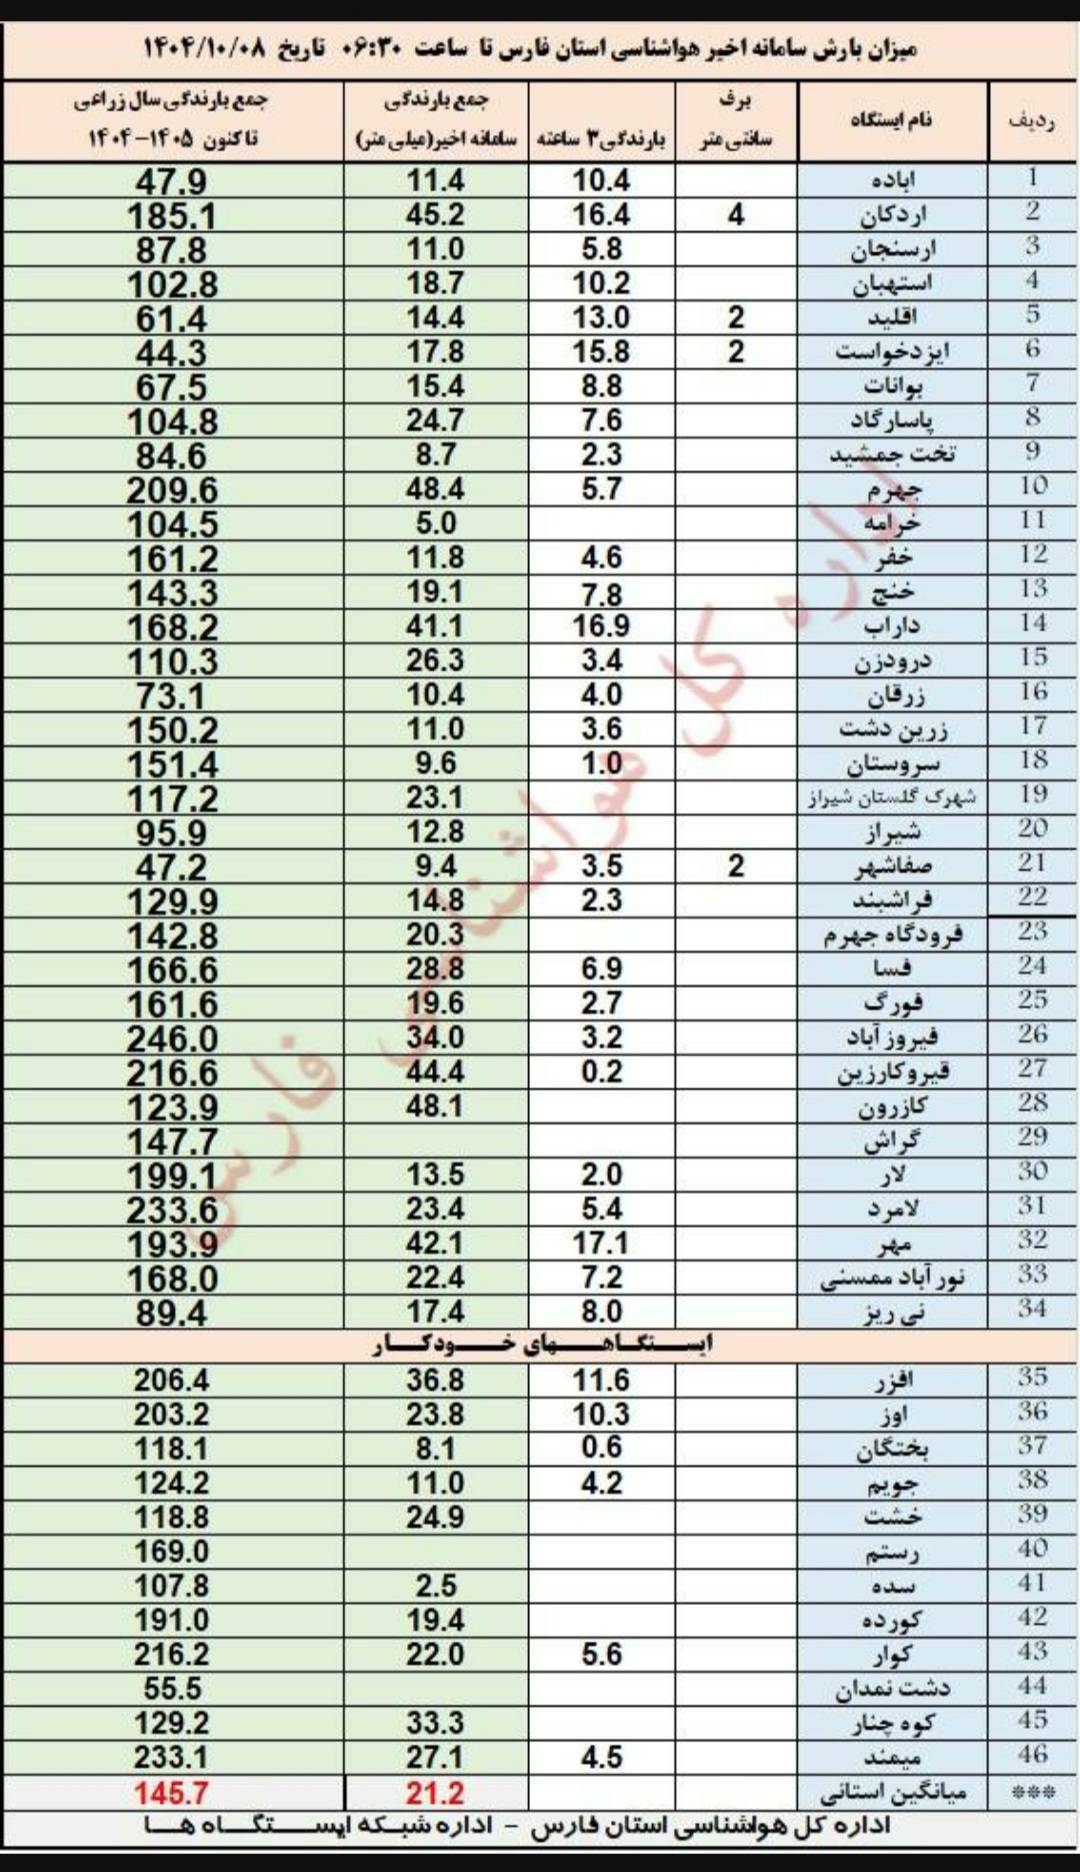 میزان بارش سامانه اخیر هواشناسی استان فارس تا ساعت ۰۶:۳۰ تاریخ ۱۴۰۴/۱۰/۰۸
ردیف نام ایستگاه برف سانتی متر بارندگی ۳ ساعته جمع بارندگی سامانه اخیر(میلی متر) جمع بارندگی سال زراعی تاکنون ۱۴۰۵-۱۴۰۴
1 اباده 10.4 11.4 47.9
2 اردکان 4 16.4 45.2 185.1
3 ارسنجان 5.8 11.0 87.8
4 استهبان 10.2 18.7 102.8
5 اقلید 2 13.0 14.4 61.4
6 ایزدخواست 2 15.8 17.8 44.3
7 بوانات 8.8 15.4 67.5
8 پاسارگاد 7.6 24.7 104.8
9 تخت جمشید 2.3 8.7 84.6
10 جهرم 5.7 48.4 209.6
11 خرامه 5.0 104.5
12 خفر 4.6 11.8 161.2
13 خنج 7.8 19.1 143.3
14 داراب 16.9 41.1 168.2
15 درودزن 3.4 26.3 110.3
16 زرقان 4.0 10.4 73.1
17 زرین دشت 3.6 11.0 150.2
18 سروستان 1.0 9.6 151.4
19 شهرک گلستان شیراز 23.1 117.2
20 شیراز 12.8 95.9
21 صفاشهر 2 3.5 9.4 47.2
22 فراشبند 2.3 14.8 129.9
23 فرودگاه جهرم 20.3 142.8
24 فسا 6.9 28.8 166.6
25 فورگ 2.7 19.6 161.6
26 فیروز آباد 3.2 34.0 246.0
27 قیروکارزین 0.2 44.4 216.6
28 کازرون 48.1 123.9
29 گراش 147.7
30 لار 2.0 13.5 199.1
31 لامرد 5.4 23.4 233.6
32 مهر 17.1 42.1 193.9
33 نور آباد ممسنی 7.2 22.4 168.0
34 نی ریز 8.0 17.4 89.4
ایستگاههای خودکار
35 افزر 11.6 36.8 206.4
36 اوز 10.3 23.8 203.2
37 بختگان 0.6 8.1 118.1
38 جویم 4.2 11.0 124.2
39 خشت 24.9 118.8
40 رستم 169.0
41 سده 2.5 107.8
42 کورده 19.4 191.0
43 کوار 5.6 22.0 216.2
44 دشت نمدان 55.5
45 کوه چنار 33.3 129.2
46 میمند 4.5 27.1 233.1
*** میانگین استانی 21.2 145.7
اداره کل هواشناسی استان فارس - اداره شبکه ایستگاه ها
اداره کل هواشناسی فارس